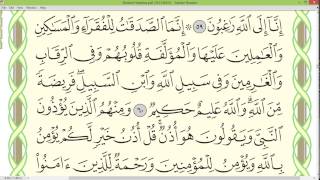 إِنَّآ إِلَى ٱللَّهِ رَٰغِبُونَ ٥٩ إِنَّمَا ٱلصَّدَقَٰتُ لِلْفُقَرَآءِ وَٱلْمَسَٰكِينِ
وَٱلْعَٰمِلِينَ عَلَيْهَا وَٱلْمُؤَلَّفَةِ قُلُوبُهُمْ وَفِى ٱلرِّقَابِ
وَٱلْغَٰرِمِينَ وَفِى سَبِيلِ ٱللَّهِ وَٱبْنِ ٱلسَّبِيلِ فَرِيضَةً
مِّنَ ٱللَّهِ وَٱللَّهُ عَلِيمٌ حَكِيمٌ ٦٠ وَمِنْهُمُ ٱلَّذِينَ يُؤْذُونَ
ٱلنَّبِىَّ وَيَقُولُونَ هُوَ أُذُنٌ قُلْ أُذُنُ خَيْرٍ لَّكُمْ يُؤْمِنُ
بِٱللَّهِ وَيُؤْمِنُ لِلْمُؤْمِنِينَ وَرَحْمَةٌ لِّلَّذِينَ ءَامَنُوا۟